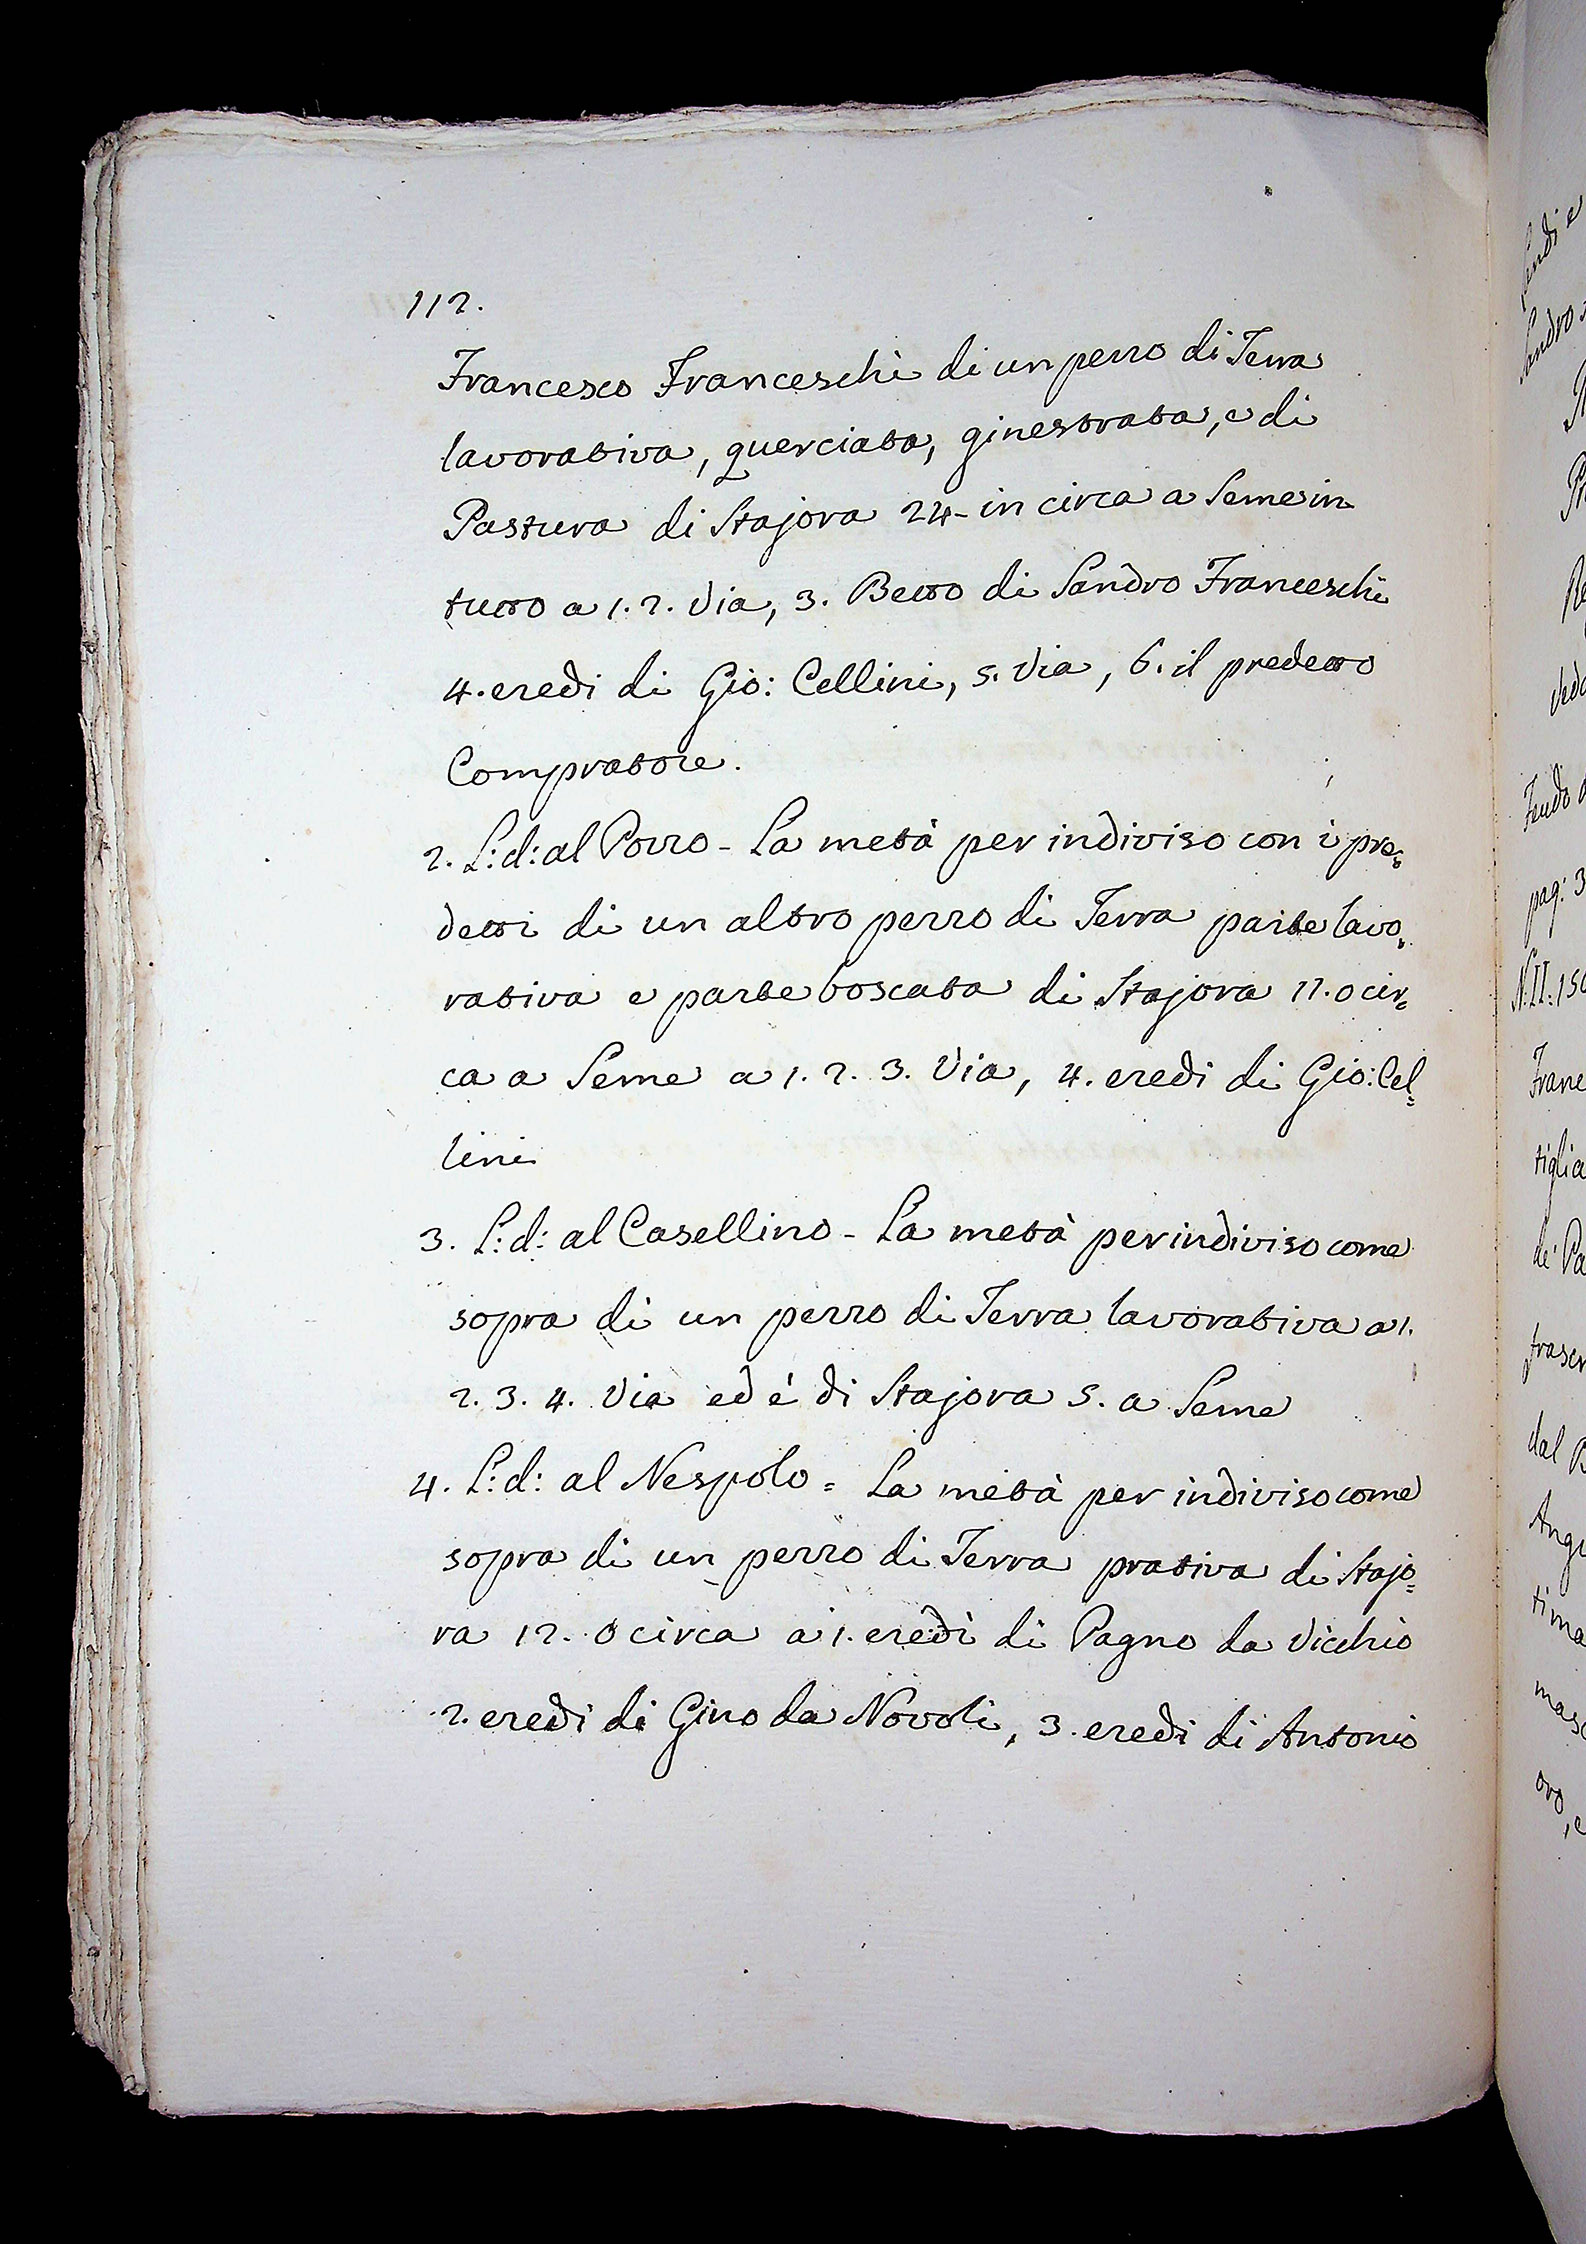 112.
Francesco Franceschi di un pezzo di Terra
lavorativa, querciata, ginestrata, e di
Pastura di Stajora 24- in circa a Seme in
tutto a 1. 2. Via, 3. Betto di Sandro Franceschi
4. eredi di Gio: Cellini, 5. Via, 6. il predetto
Compratore.
2. L: d: al Pozzo - La metà per indiviso con i pre=
detti di un altro pezzo di Terra parte lavo=
rativa e parte boscata di Stajora 11. o cir=
ca a Seme a 1. 2. 3. Via, 4. eredi di Gio: Cel=
lini
3. L: d: al Casellino - La metà per indiviso come
sopra di un pezzo di Terra lavorativa a 1.
2. 3. 4. Via ed è di Stajora 5. a Seme
4. L: d: al Nespolo = La metà per indiviso come
sopra di un pezzo di Terra prativa di Stajo=
ra 12. o circa a 1. eredi di Pagno da Vicchio
2. eredi di Gino da Novoli, 3. eredi di Antonio
Sandro
Feudo
pag: 3
N: II: 15
Franc
tiglia
de' Pa
frascr
dal
Ang
tima
masc
oro, e